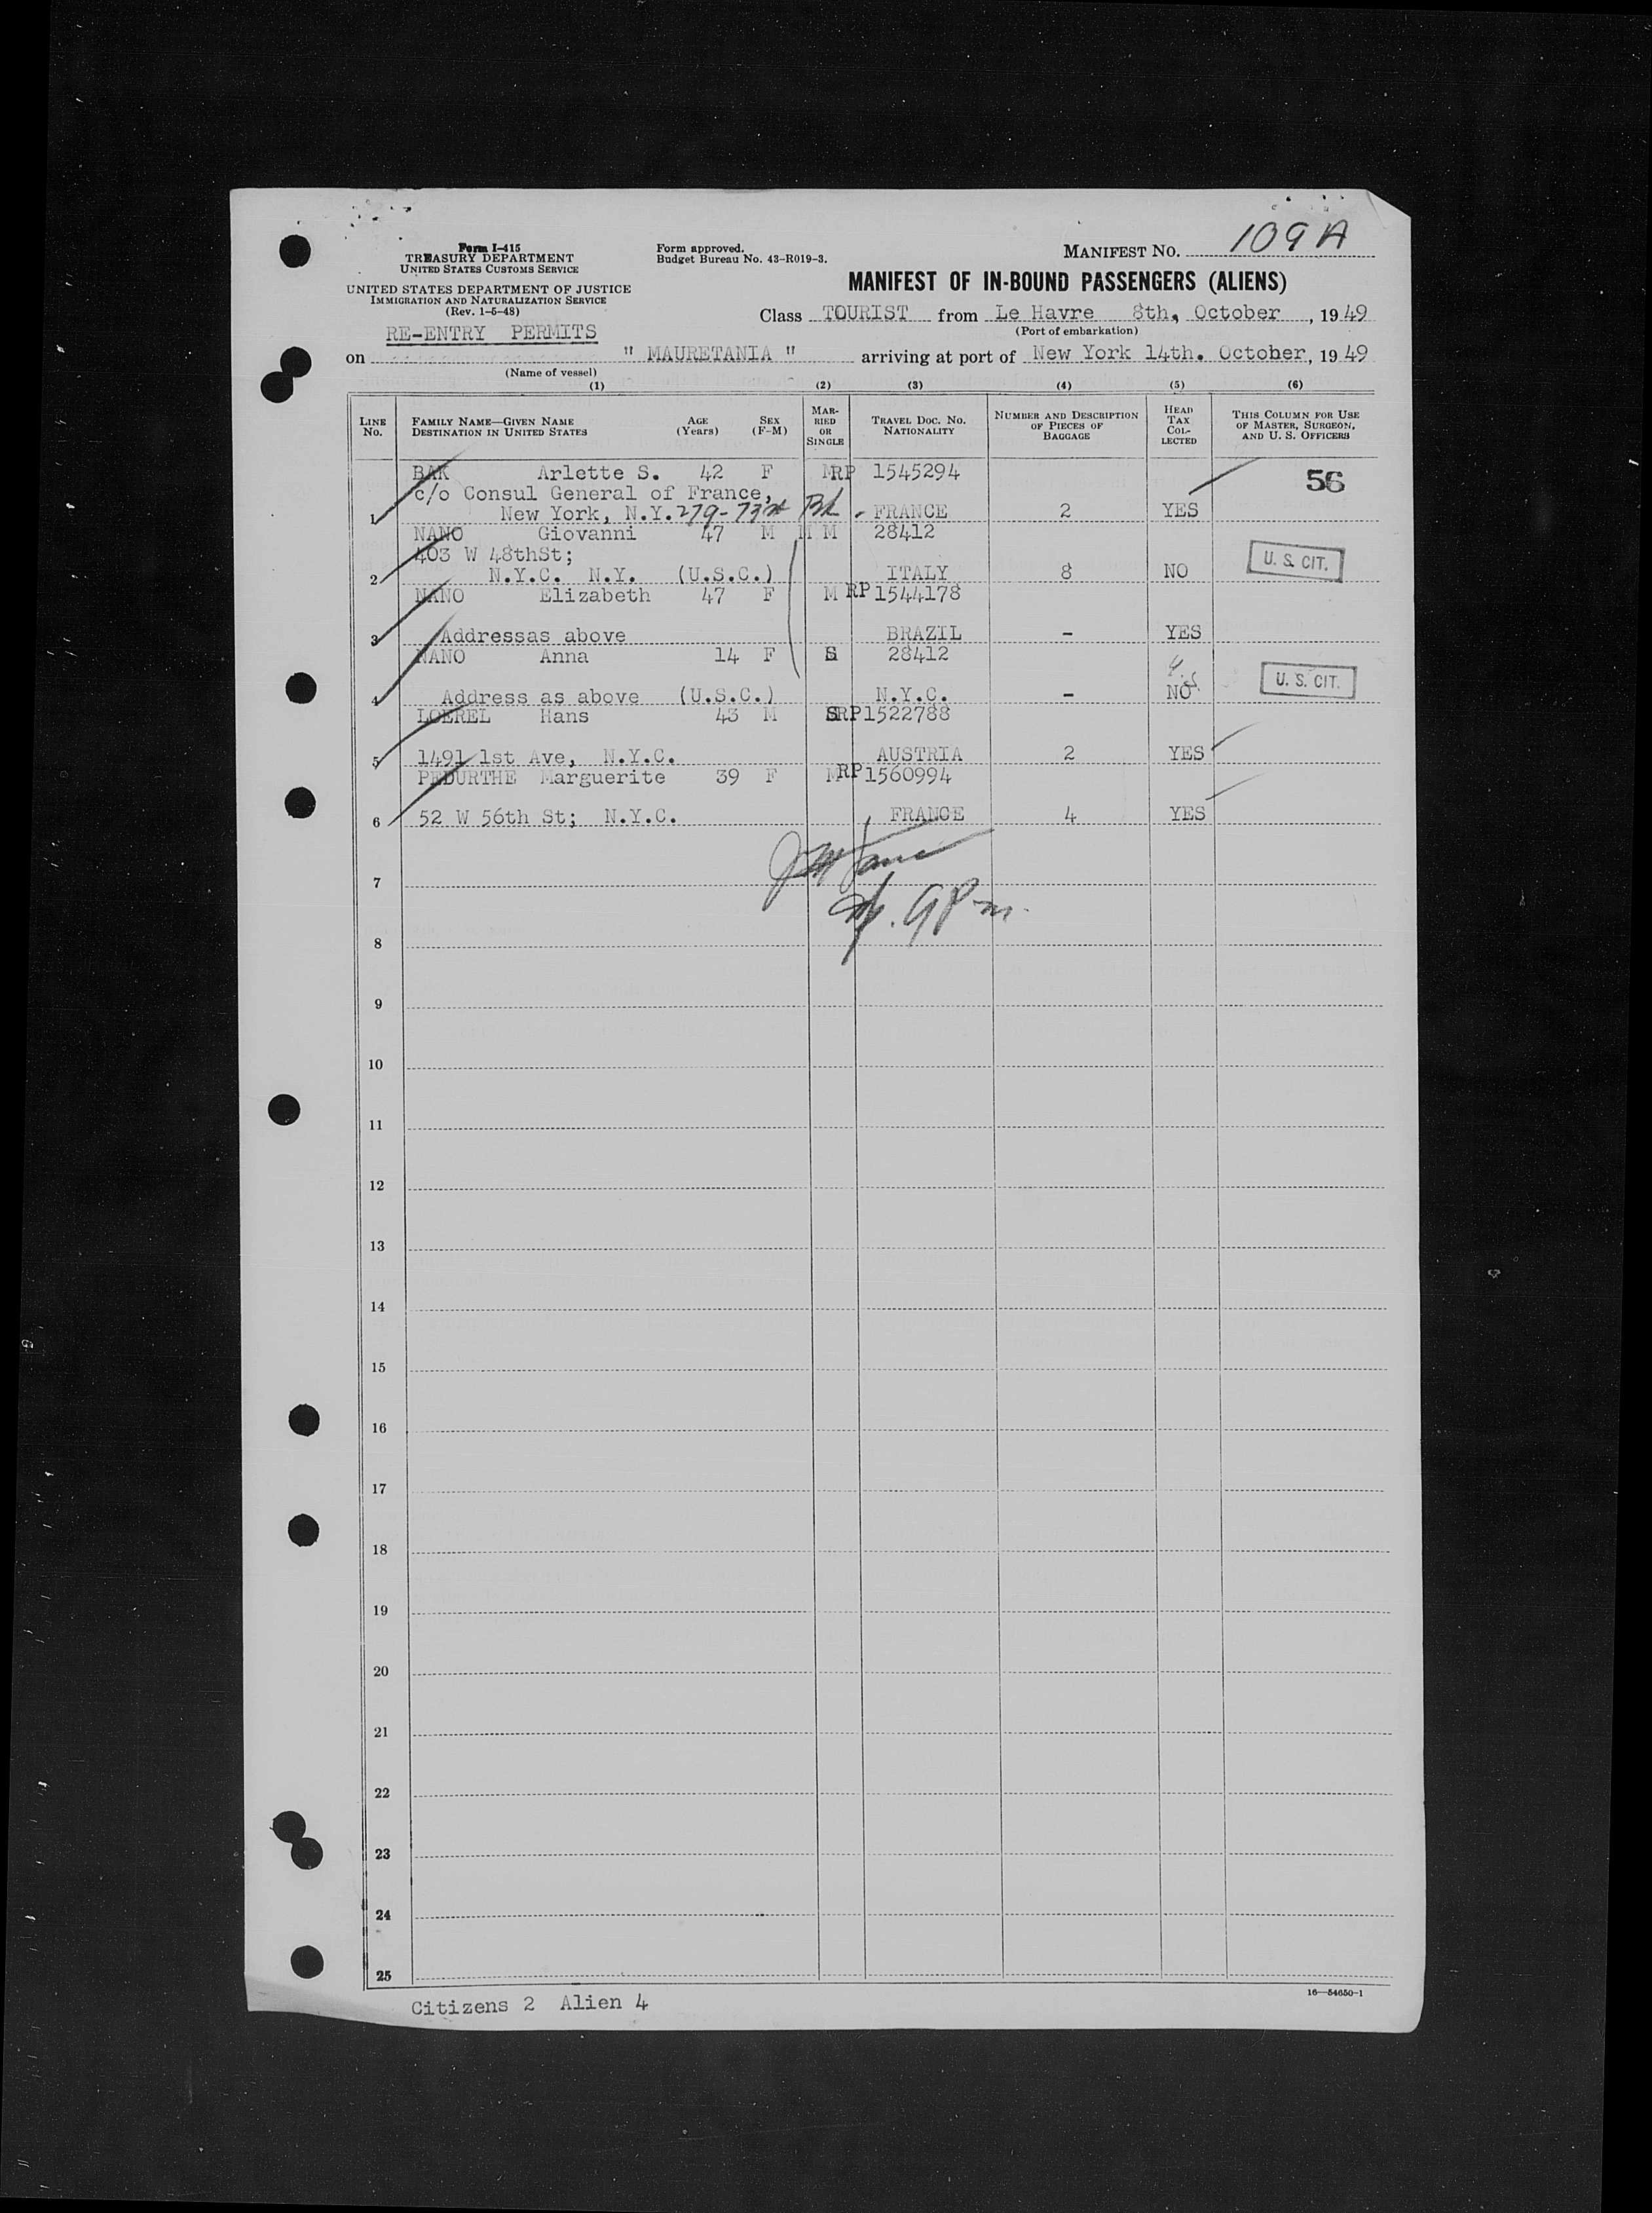 109A
Form I-415
TREASURY DEPARTMENT
UNITED STATES CUSTOMS SERVICE
UNITED STATES DEPARTMENT OF JUSTICE
IMMIGRATION AND NATURALIZATION SERVICE
(Rev. 1-5-48)
Form approved.
Budget Bureau No. 43-R019-3.
MANIFEST NO.
MANIFEST OF IN-BOUND PASSENGERS (ALIENS)
Class TOURIST from Le Havre 8th, October, 1949
(Port of embarkation)
RE-ENTRY PERMITS
on " MAURETANIA " arriving at port of New York 14th. October, 1949
(Name of vessel)
(1) (2) (3) (4) (5) (6)
LINE No.
FAMILY NAME—GIVEN NAME AGE (Years) SEX (F-M)
DESTINATION IN UNITED STATES
MARRIED OR SINGLE
TRAVEL DOC. NO. NATIONALITY
NUMBER AND DESCRIPTION OF PIECES OF BAGGAGE
HEAD TAX COLLECTED
THIS COLUMN FOR USE OF MASTER, SURGEON, AND U. S. OFFICERS
BAK Arlette S. 42 F M RP 1545294 56
c/o Consul General of France,
1 New York, N.Y. 279-73rd FRANCE 2 YES
NANO Giovanni 47 M M M 28412
403 W 48thSt; U. S. CIT.
2 N.Y.C. N.Y. (U.S.C.) ITALY 8 NO
NANO Elizabeth 47 F M RP 1544178
3 Addressas above BRAZIL - YES
NANO Anna 14 F S 28412
4 Address as above (U.S.C.) N.Y.C. - NO U. S. CIT.
LOEREL Hans 43 M S RP 1522788
5 1491 1st Ave, N.Y.C. AUSTRIA 2 YES
PEDURTHE Marguerite 39 F M RP 1560994
6 52 W 56th St; N.Y.C. FRANCE 4 YES
7
8
9
10
11
12
13
14
15
16
17
18
19
20
21
22
23
24
25
Citizens 2 Alien 4
16—54650-1